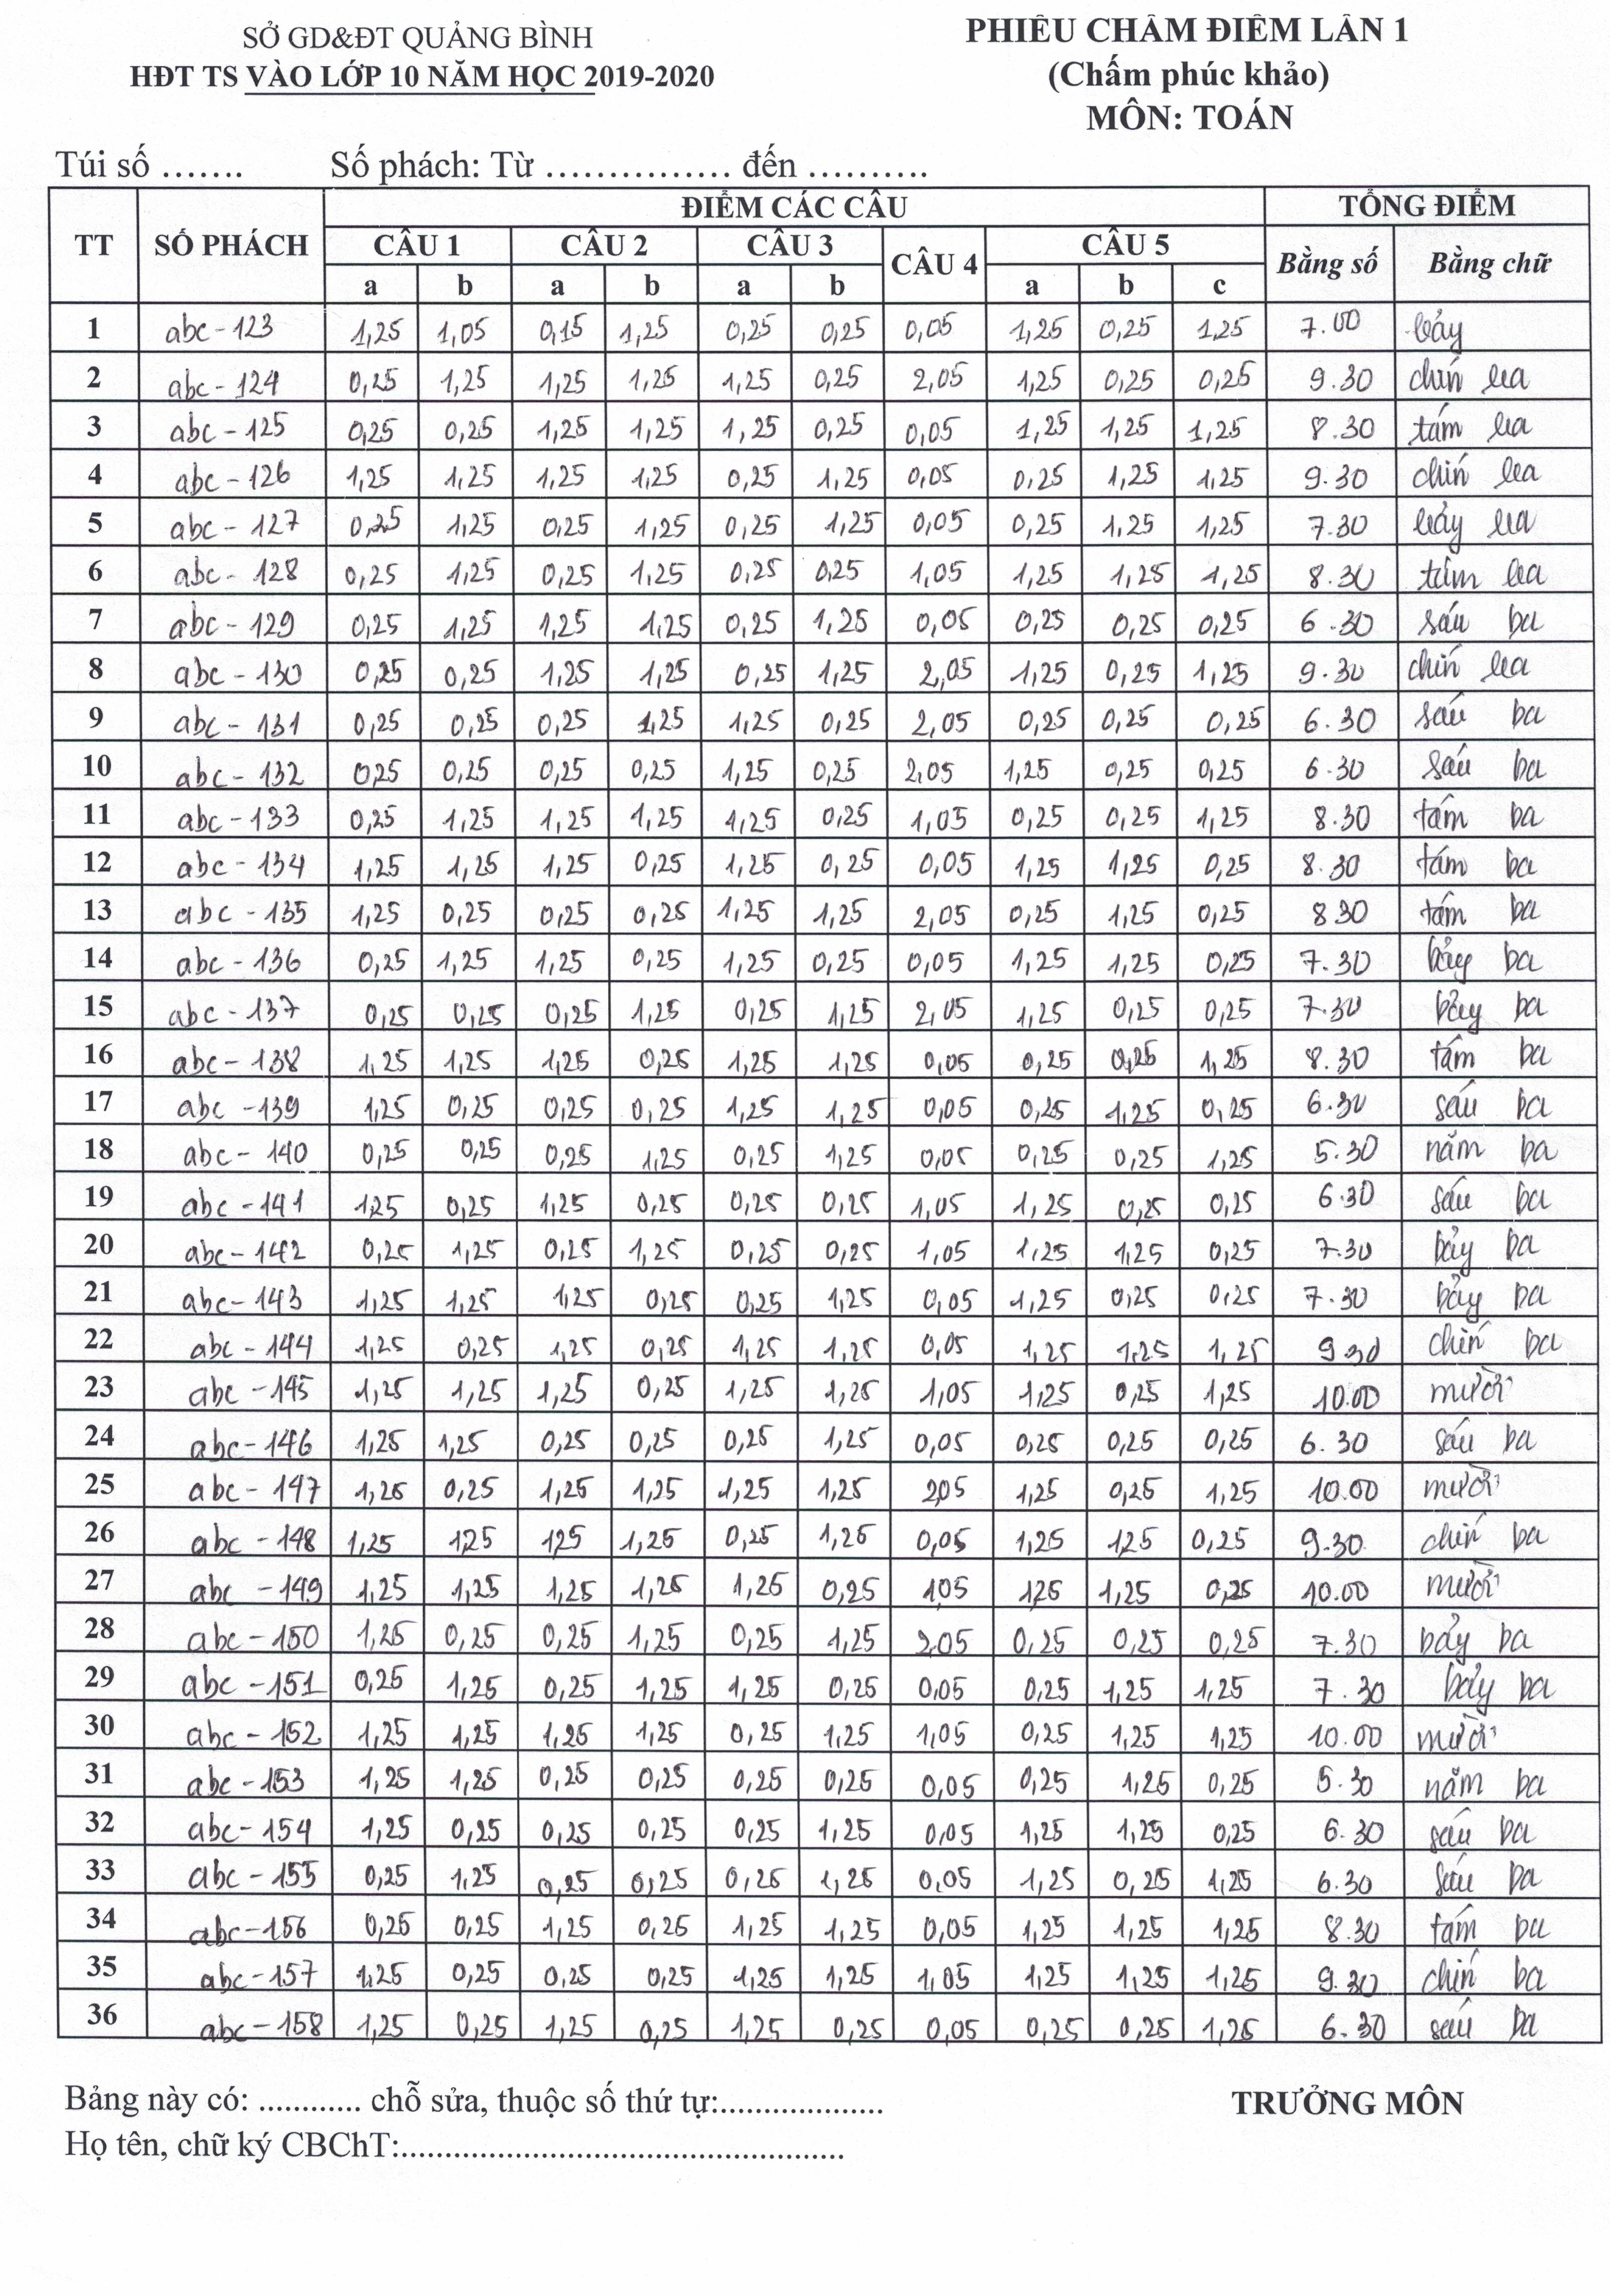 SỞ GD&ĐT QUẢNG BÌNH
HĐT TS VÀO LỚP 10 NĂM HỌC 2019-2020
PHIẾU CHẤM ĐIỂM LẦN 1
(Chấm phúc khảo)
MÔN: TOÁN
Túi số ....... Số phách: Từ ................ đến ..........
TT SỐ PHÁCH ĐIỂM CÁC CÂU TỔNG ĐIỂM
CÂU 1 CÂU 2 CÂU 3 CÂU 4 CÂU 5 Bằng số Bằng chữ
a b a b a b a b c
1 abc-123 1,25 1,05 0,15 1,25 0,25 0,25 0,05 1,25 0,25 1,25 7.00 bảy
2 abc-124 0,25 1,25 1,25 1,25 1,25 0,25 2,05 1,25 0,25 0,25 9.30 chín ba
3 abc-125 0,25 0,25 1,25 1,25 1,25 0,25 0,05 1,25 1,25 1,25 8.30 tám ba
4 abc-126 1,25 1,25 1,25 1,25 0,25 1,25 0,05 0,25 1,25 1,25 9.30 chín ba
5 abc-127 0,25 1,25 0,25 1,25 0,25 1,25 0,05 0,25 1,25 1,25 7.30 bảy ba
6 abc-128 0,25 1,25 0,25 1,25 0,25 0,25 1,05 1,25 1,25 1,25 8.30 tám ba
7 abc-129 0,25 1,25 1,25 1,25 0,25 1,25 0,05 0,25 0,25 0,25 6.30 sáu ba
8 abc-130 0,25 0,25 1,25 1,25 0,25 1,25 2,05 1,25 0,25 1,25 9.30 chín ba
9 abc-131 0,25 0,25 0,25 1,25 1,25 0,25 2,05 0,25 0,25 0,25 6.30 sáu ba
10 abc-132 0,25 0,25 0,25 0,25 1,25 0,25 2,05 1,25 0,25 0,25 6.30 sáu ba
11 abc-133 0,25 1,25 1,25 1,25 1,25 0,25 1,05 0,25 0,25 1,25 8.30 tám ba
12 abc-134 1,25 1,25 1,25 0,25 1,25 0,25 0,05 1,25 1,25 0,25 8.30 tám ba
13 abc-135 1,25 0,25 0,25 0,25 1,25 1,25 2,05 0,25 1,25 0,25 8 30 tám ba
14 abc-136 0,25 1,25 1,25 0,25 1,25 0,25 0,05 1,25 1,25 0,25 7.30 bảy ba
15 abc-137 0,25 0,25 0,25 1,25 0,25 1,25 2,05 1,25 0,25 0,25 7.30 bảy ba
16 abc-138 1,25 1,25 1,25 0,25 1,25 1,25 0,05 0,25 0,25 1,25 8.30 tám ba
17 abc-139 1,25 0,25 0,25 0,25 1,25 1,25 0,05 0,25 1,25 0,25 6.30 sáu ba
18 abc-140 0,25 0,25 0,25 1,25 0,25 1,25 0,05 0,25 0,25 1,25 5.30 năm ba
19 abc-141 1,25 0,25 1,25 0,25 0,25 0,25 1,05 1,25 0,25 0,25 6.30 sáu ba
20 abc-142 0,25 1,25 0,25 1,25 0,25 0,25 1,05 1,25 1,25 0,25 7.30 bảy ba
21 abc-143 1,25 1,25 1,25 0,25 0,25 1,25 0,05 1,25 0,25 0,25 7.30 bảy ba
22 abc-144 1,25 0,25 1,25 0,25 1,25 1,25 0,05 1,25 1,25 1,25 9 30 chín ba
23 abc-145 1,25 1,25 1,25 0,25 1,25 1,25 1,05 1,25 0,25 1,25 10.00 mười
24 abc-146 1,25 1,25 0,25 0,25 0,25 1,25 0,05 0,25 0,25 0,25 6.30 sáu ba
25 abc-147 1,25 0,25 1,25 1,25 1,25 1,25 2,05 1,25 0,25 1,25 10.00 mười
26 abc-148 1,25 1,25 1,25 1,25 0,25 1,25 0,05 1,25 1,25 0,25 9.30 chín ba
27 abc-149 1,25 1,25 1,25 1,25 1,25 0,25 1,05 1,25 1,25 0,25 10.00 mười
28 abc-150 1,25 0,25 0,25 1,25 0,25 1,25 2,05 0,25 0,25 0,25 7.30 bảy ba
29 abc-151 0,25 1,25 0,25 1,25 1,25 0,25 0,05 0,25 1,25 1,25 7.30 bảy ba
30 abc-152 1,25 1,25 1,25 1,25 0,25 1,25 1,05 0,25 1,25 1,25 10.00 mười
31 abc-153 1,25 1,25 0,25 0,25 0,25 0,25 0,05 0,25 1,25 0,25 5.30 năm ba
32 abc-154 1,25 0,25 0,25 0,25 0,25 1,25 0,05 1,25 1,25 0,25 6.30 sáu ba
33 abc-155 0,25 1,25 0,25 0,25 0,25 1,25 0,05 1,25 0,25 1,25 6.30 sáu ba
34 abc-156 0,25 0,25 1,25 0,25 1,25 1,25 0,05 1,25 1,25 1,25 8.30 tám ba
35 abc-157 1,25 0,25 0,25 0,25 1,25 1,25 1,05 1,25 1,25 1,25 9.30 chín ba
36 abc-158 1,25 0,25 1,25 0,25 1,25 0,25 0,05 0,25 0,25 1,25 6.30 sáu ba
Bảng này có: ............ chỗ sửa, thuộc số thứ tự:...................
TRƯỞNG MÔN
Họ tên, chữ ký CBChT:...................................................